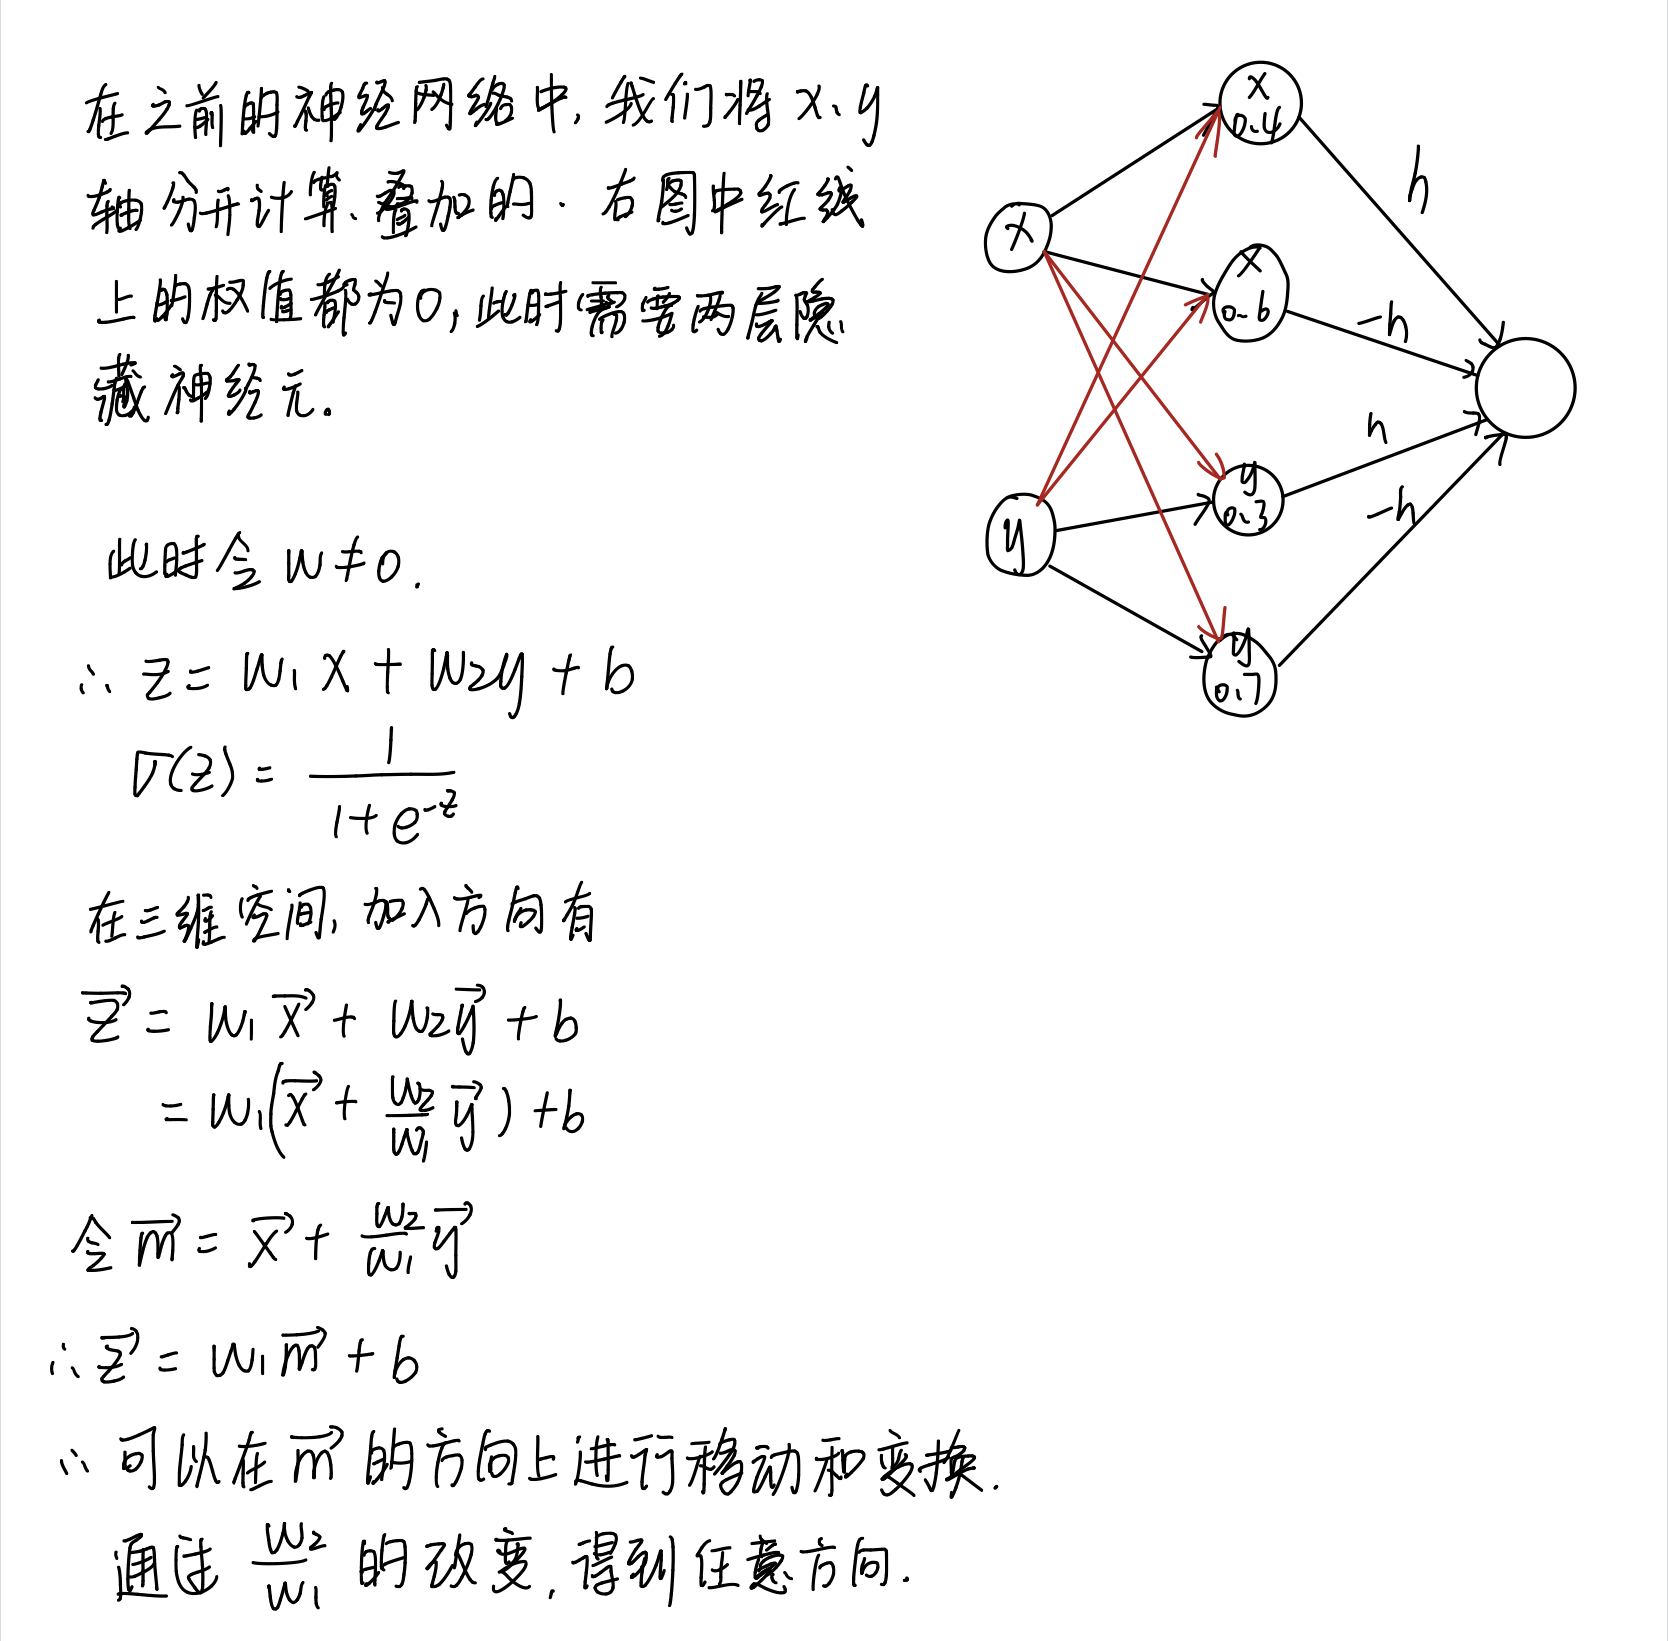 在之前的神经网络中,我们将x、y
轴分开计算、叠加的. 右图中红线
上的权值都为0,此时需要两层隐
藏神经元.
此时令 w≠0.
∴ z = w₁x + w₂y + b
σ(z) = 1/(1+e^-z)
在三维空间,加入方向有
z⃗ = w₁x⃗ + w₂y⃗ + b
= w₁(x⃗ + w₂/w₁ y⃗) + b
令 m⃗ = x⃗ + w₂/w₁ y⃗
∴ z⃗ = w₁m⃗ + b
∴ 可以在 m⃗ 的方向上进行移动和变换.
通过 w₂/w₁ 的改变,得到任意方向.
x
0.4
h
x
x
0.6
-h
h
y
0.3
-h
y
y
0.7